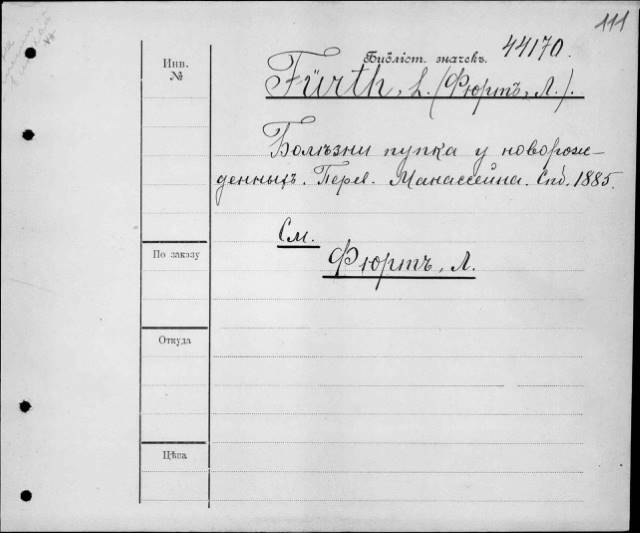 111
Библіот. значекъ. 44170.
Инв.
№
Fürth, L. (Фюртъ, Л.).
Болѣзни пупка у новорож-
денныхъ. Перев. Манассеина. Спб. 1885.
См.
Фюртъ, Л.
По заказу
Откуда
Цѣна